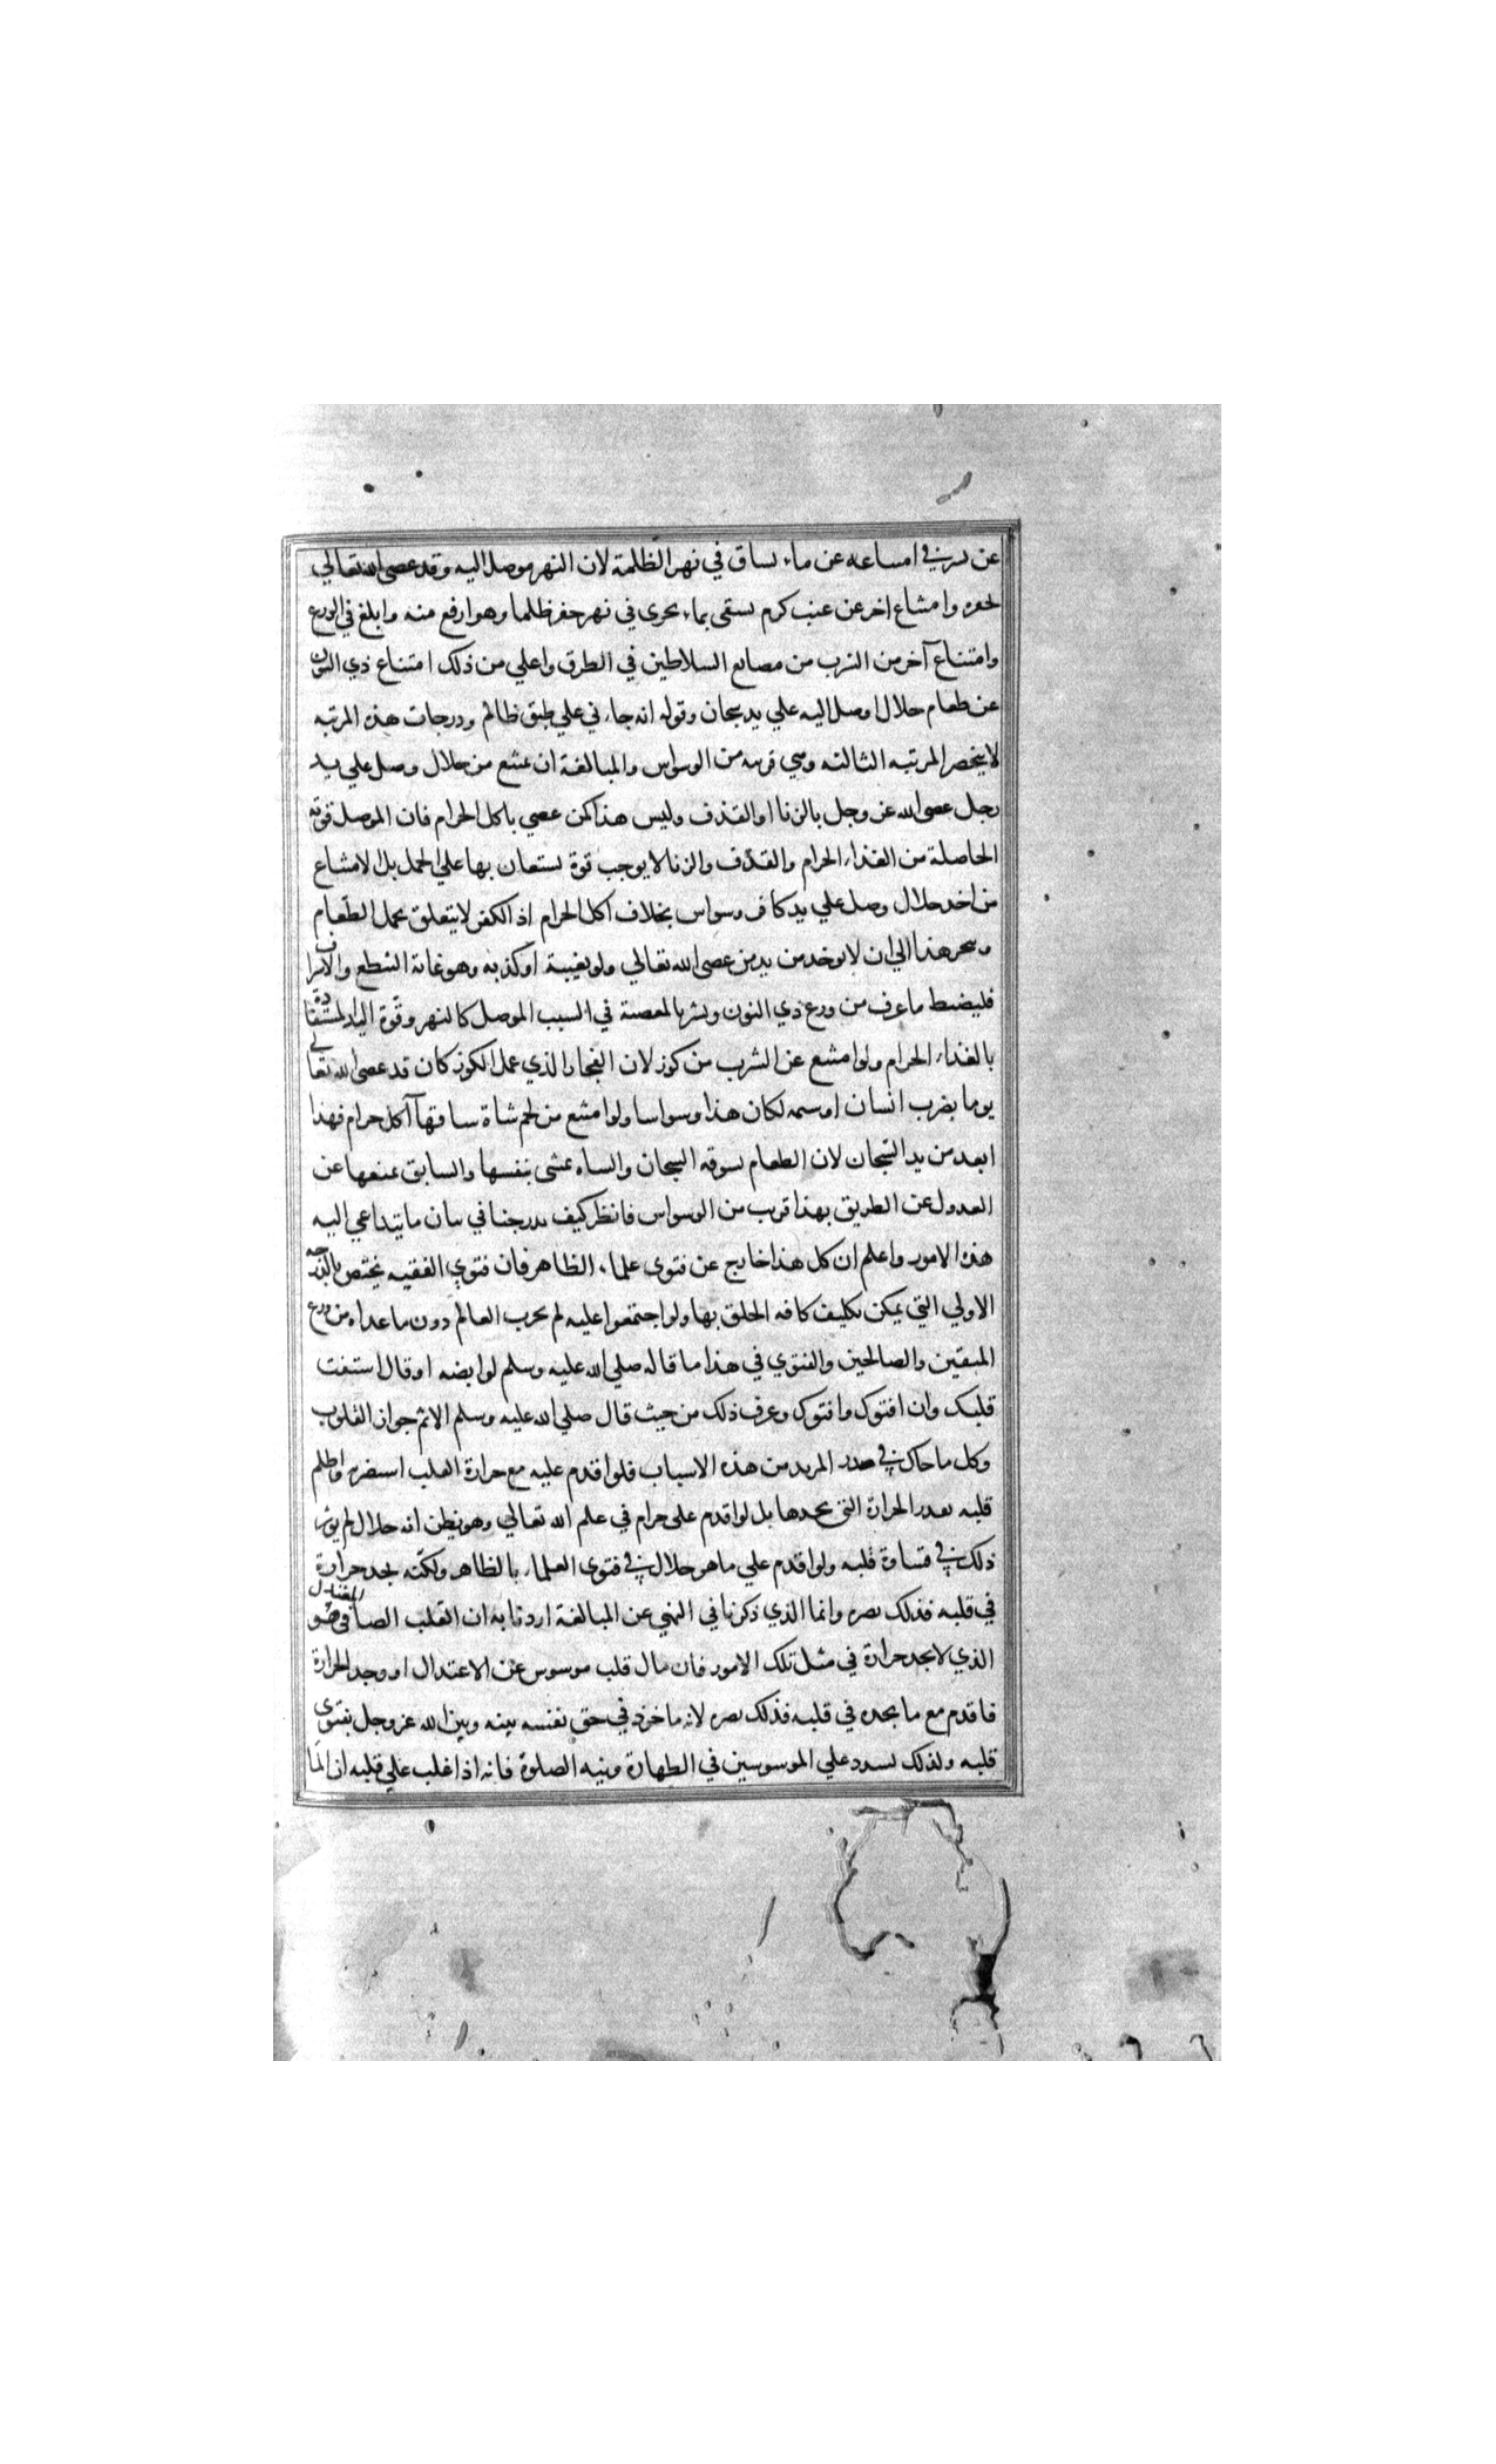 عن بشر في امتناعه عن ماء يساق في نهر الظلمة لان النهر موصل اليه وقد عصى الله تعالي
بحفره وامتناع اخر عن عنب كرم يسقى بماء يجرى في نهر حفر ظلما وهو ارفع منه وابلغ في الورع
وامتناع آخر من الشرب من مصانع السلاطين في الطرق واعلي من ذلك امتناع ذي النون
عن طعام حلال اوصل اليه علي يد سجان وقوله انه جاءني علي طبق ظالم ودرجات هذه المرتبه
لا ينحصر المرتبه الثالثه وهي قريبه من الوسواس والمبالغة ان يمتنع من حلال وصل علي يد
رجل عصى الله عز وجل بالزنا او القذف وليس هذا كمن عصي باكل الحرام فان الموصل قوته
الحاصلة من الغذاء الحرام والقذف والزنا لا يوجب قوة يستعان بها علي الحمل بل الامتناع
من اخذ حلال وصل علي يد كافر وسواس بخلاف اكل الحرام اذ الكفر لا يتعلق بحمل الطعام
هذا الي ان لا يوخذ من يد من عصى الله تعالي ولو بغيبة او كذبه وهو غاية التنطع والاسراف
فليضبط ما عرف من ورع ذي النون وبشر بالمعصية في السبب الموصل كالنهر وقوة اليد المستفادة
بالغذاء الحرام ولو امتنع عن الشرب من كوز لان الفخار الذي عمل الكوز كان قد عصى الله تعالي
يوما بضرب انسان او شتمه لكان هذا وسواسا ولو امتنع من لحم شاة ساقها آكل حرام فهذا
ابعد من يد السجان لان الطعام يسوقه السجان والشاه تمشى بنفسها والسايق يمنعها عن
العدول عن الطريق بهذا قرب من الوسواس فانظر كيف تدرجنا في بيان ما يتداعي اليه
هذه الامور واعلم ان كل هذا خارج عن فتوى علماء الظاهر فان فتوي الفقيه يختص بالدرجه
الاولي التي يمكن تكليف كافه الخلق بها ولو اجتمعوا عليه لم يخرب العالم دون ما عداه من ورع
المتقين والصالحين والفتوي في هذا ما قاله صلي الله عليه وسلم لوابصه اذ قال استفت
قلبك وان افتوك وافتوك وعرف ذلك من حيث قال صلي الله عليه وسلم الاثم حواز القلوب
وكل ما حاك في صدر المريد من هذه الاسباب فلو اقدم عليه مع حرارة القلب استضر به واظلم
قلبه بقدر الحرارة التي يجدها بل لو اقدم على حرام في علم الله تعالي وهو يظن انه حلال لم يوثر
ذلك في قساوة قلبه ولو اقدم علي ما هو حلال في فتوى العلماء بالظاهر ولكنه يجد حرارة
في قلبه فذلك يضره وانما الذي ذكرنا في النهي عن المبالغة اردنا به ان القلب الصافي المعتدل هو
الذي لا يجد حرارة في مثل تلك الامور فان مال قلب موسوس عن الاعتدال او وجد الحرارة
فاقدم مع ما يجده في قلبه فذلك يضره لانه ماخوذ في حق نفسه بينه وبين الله عز وجل بفتوى
قلبه ولذلك يسدد علي الموسوسين في الطهارة ونيه الصلوة فانه اذا غلب علي قلبه ان الما